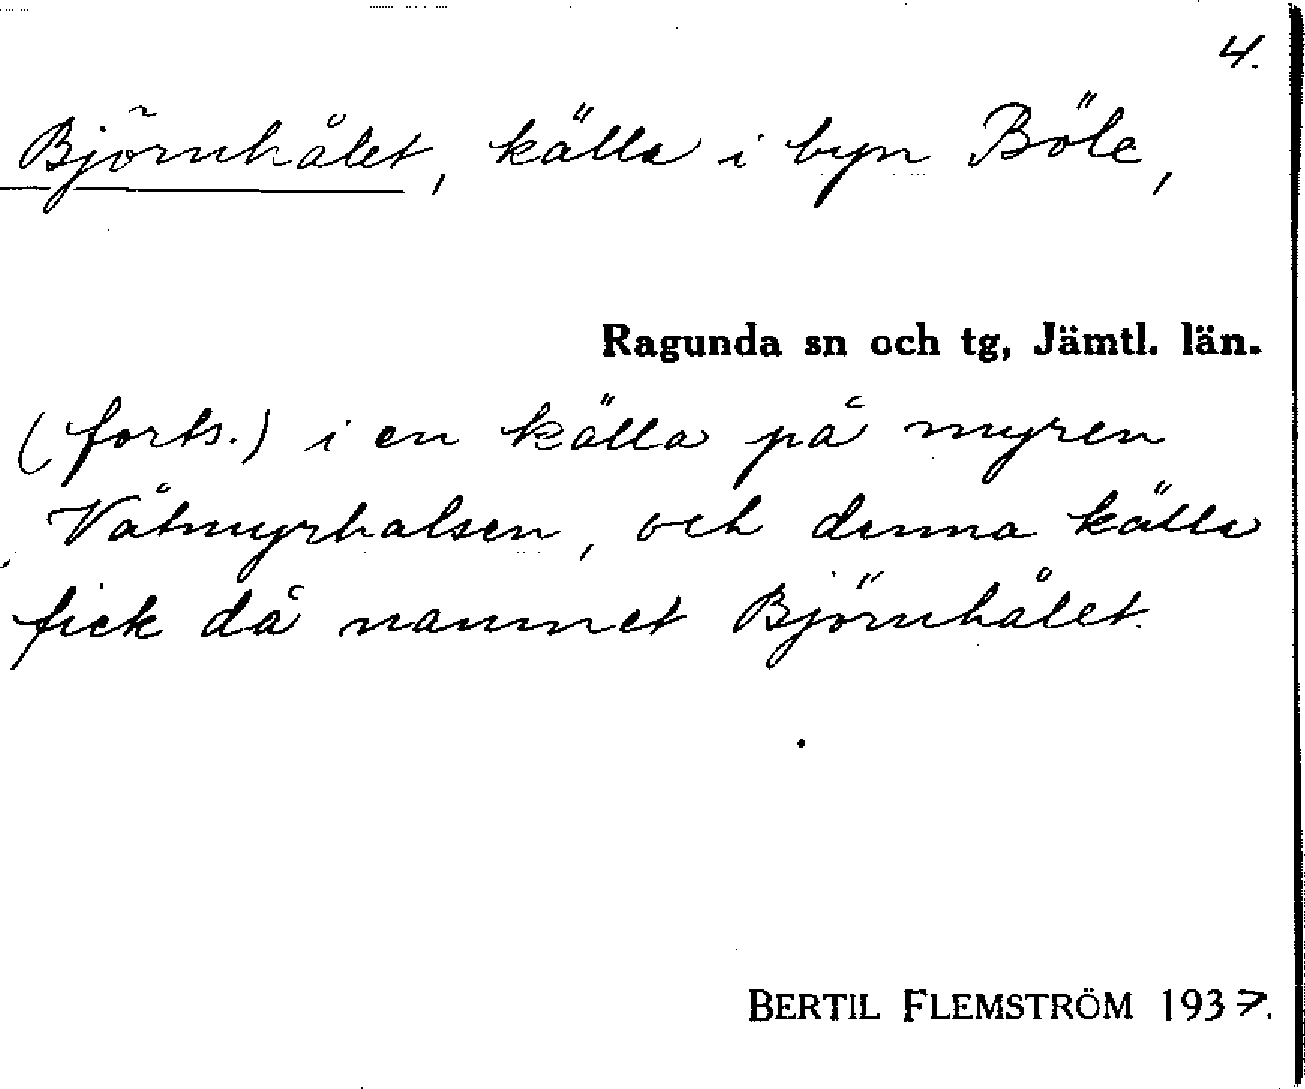 4.
Björnhålet, källa i byn Böle,
Ragunda sn och tg, Jämtl. län.
(forts.) i en källa på myren
Våtmyrhalsen, och denna källa
fick då namnet Björnhålet.
BERTIL FLEMSTRÖM 1937.